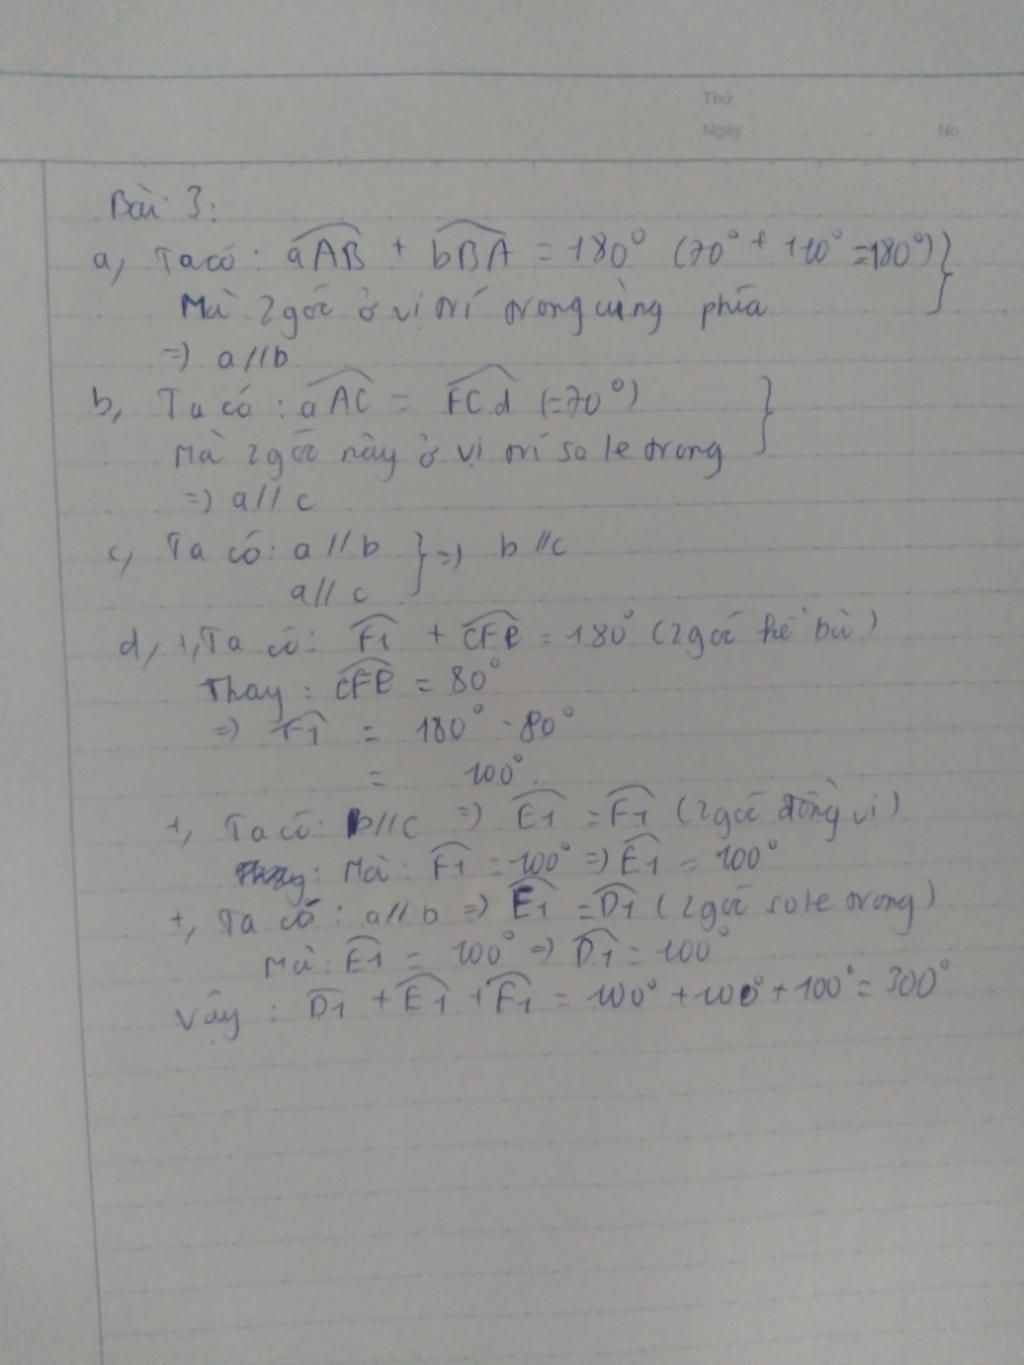 Thứ
Ngày . . No
Bài 3:
a, Ta có: aAB + bBA = 180° (70° + 110° = 180°) }
Mà 2 góc ở vị trí trong cùng phía
=) a//b
b, Ta có: aAC = FCd (=70°) }
Mà 2 góc này ở vị trí so le trong
=) a//c
c, Ta có: a//b } =) b//c
a//c
d, +, Ta có: F1 + CFE = 180° (2 góc kề bù)
Thay: CFE = 80°
=) F1 = 180° - 80°
= 100°.
+, Ta có: b//c =) E1 = F1 (2 góc đồng vị)
Mà: F1 = 100° =) E1 = 100°
+, Ta có: a//b =) E1 = D1 (2 góc so le trong)
Mà: E1 = 100° =) D1 = 100°
Vậy: D1 + E1 + F1 = 100° + 100° + 100° = 300°